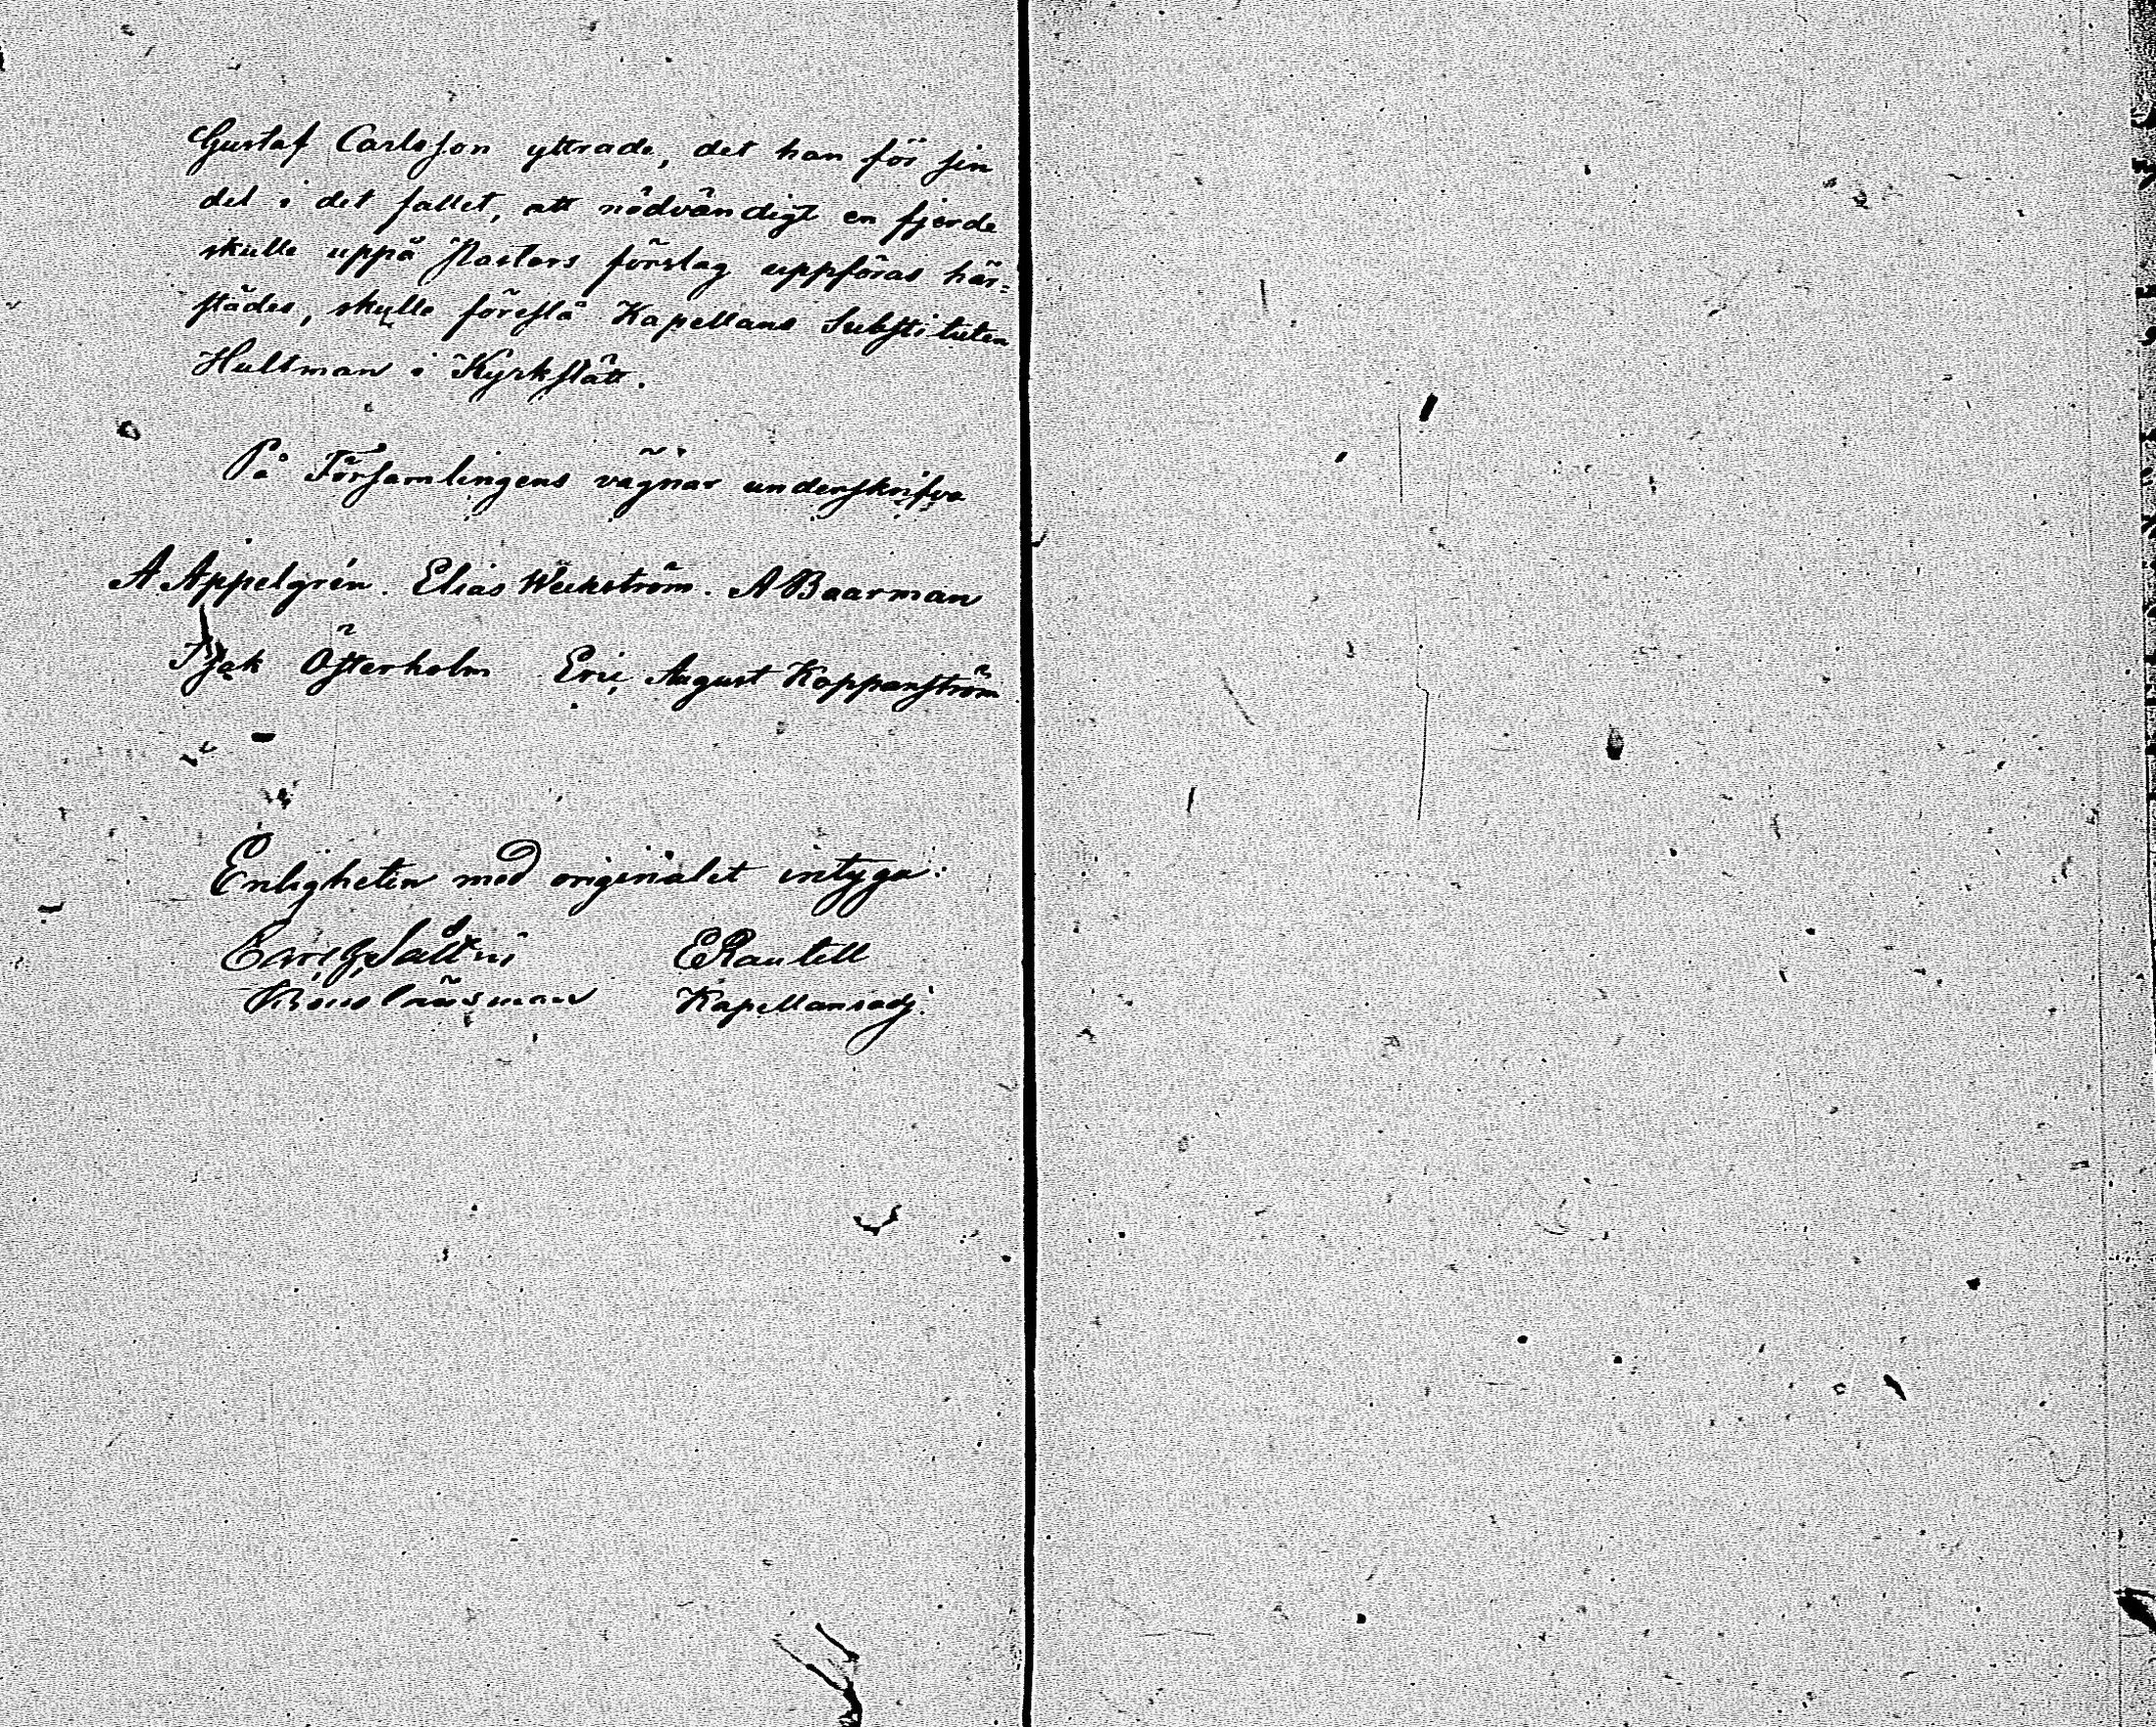 Gustaf Carlsson yttrade, det han för sin
del i det fallet, att nödvändigt en fjerde
skulle uppå Pastors förslag uppföras här-
städes, skulle föreslå Kapellans Substituten
Hultman i Kyrkslätt.
På Församlingens vägnar underskrifva
A Appelgrén. Elias Weckström. A Baarman
Isak Österholm Eric August Koppanström
Enligheten med originalet intyga:
Carl G. E Rantell
Kronolänsman Kapellansadj: